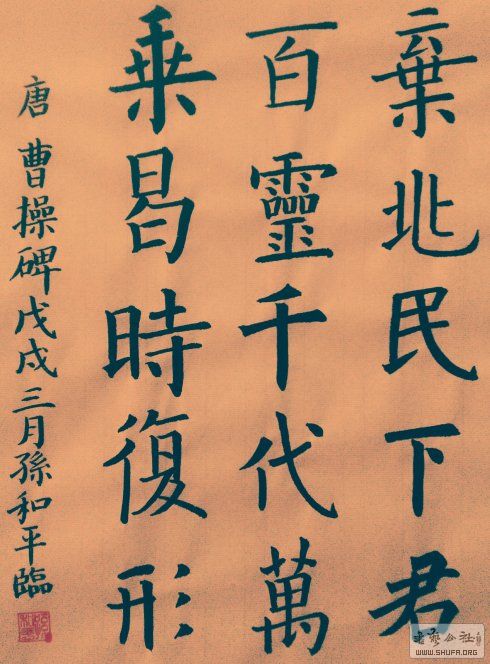 棄兆民下君
百靈千代萬
乘曷時復形
唐 曹操碑戊戌三月孫和平臨
書藝公社
WWW.SHUFA.ORG